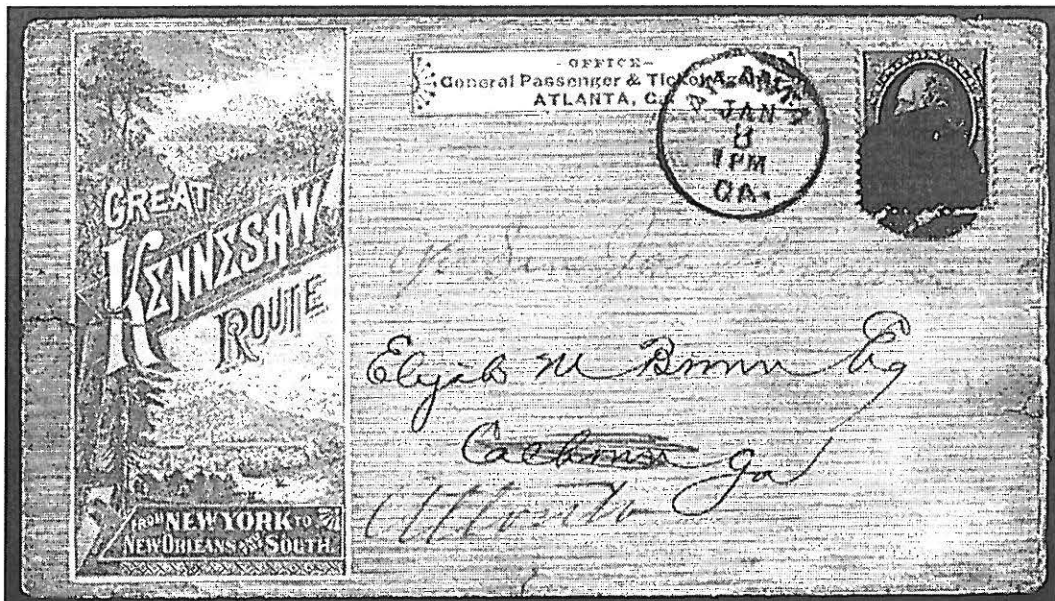 GREAT
KENNESAW
ROUTE
FROM NEW YORK TO
NEW ORLEANS AND SOUTH.
-OFFICE-
General Passenger & Ticket
ATLANTA, GA
ATLANTA
JAN
8
1PM
GA.
Elijah M Brown Esq
Calhoun Ga
Atlanta